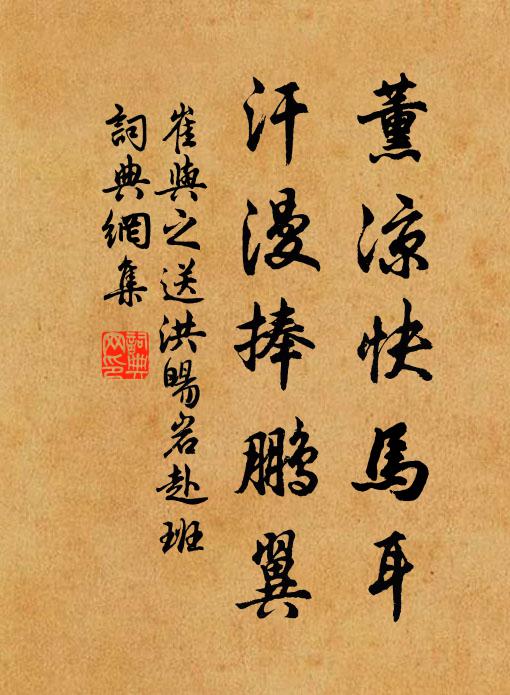 薰涼快馬耳
汗漫捧鵬翼
崔與之送洪暘岩赴班
詞典網集
詞典网印